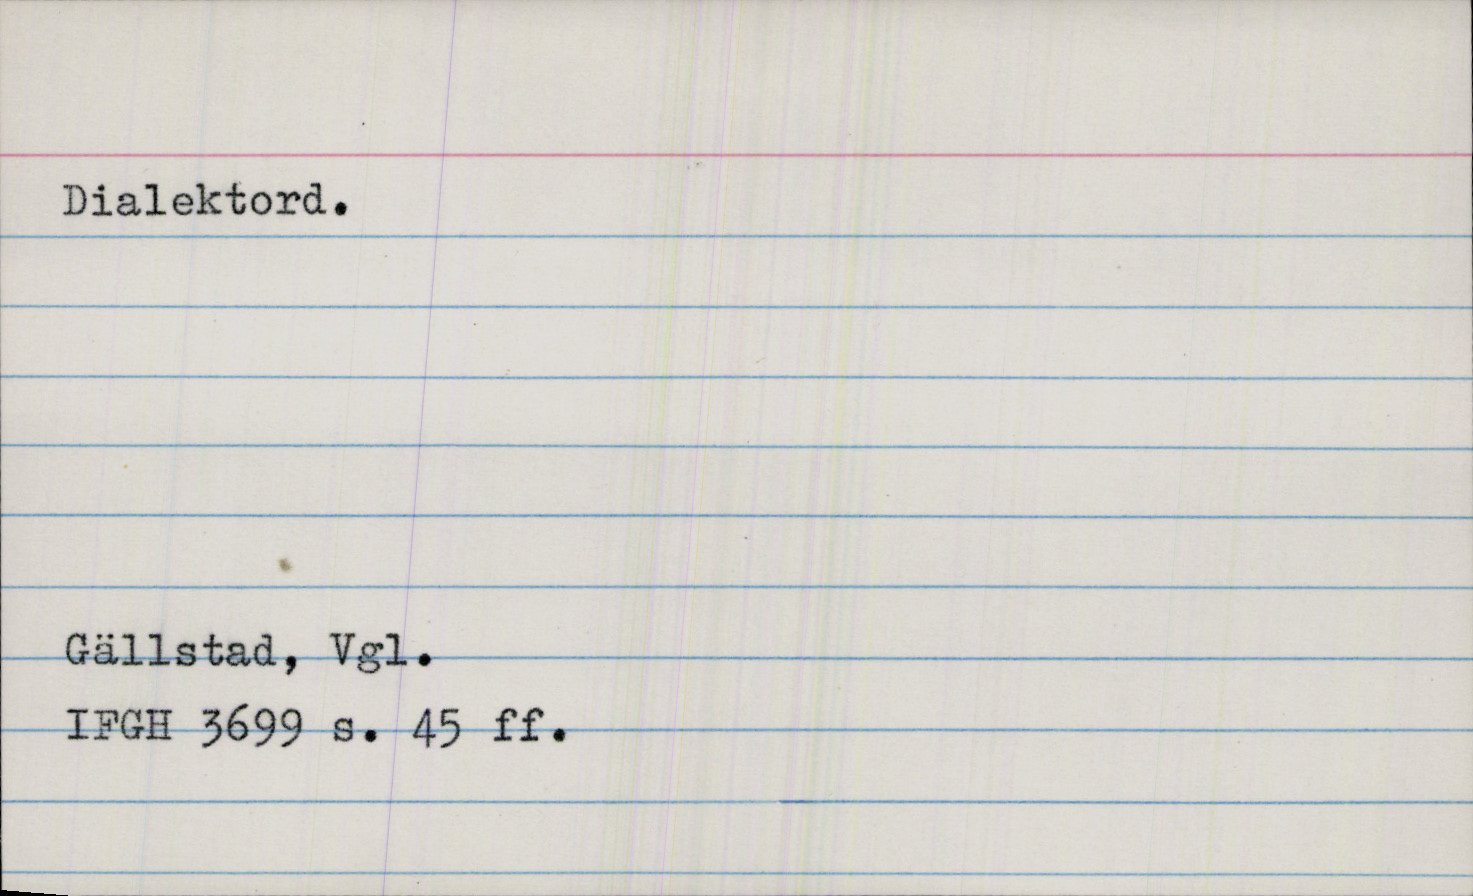 Dialektord.
Gällstad, Vgl.
IFGH 3699 s. 45 ff.